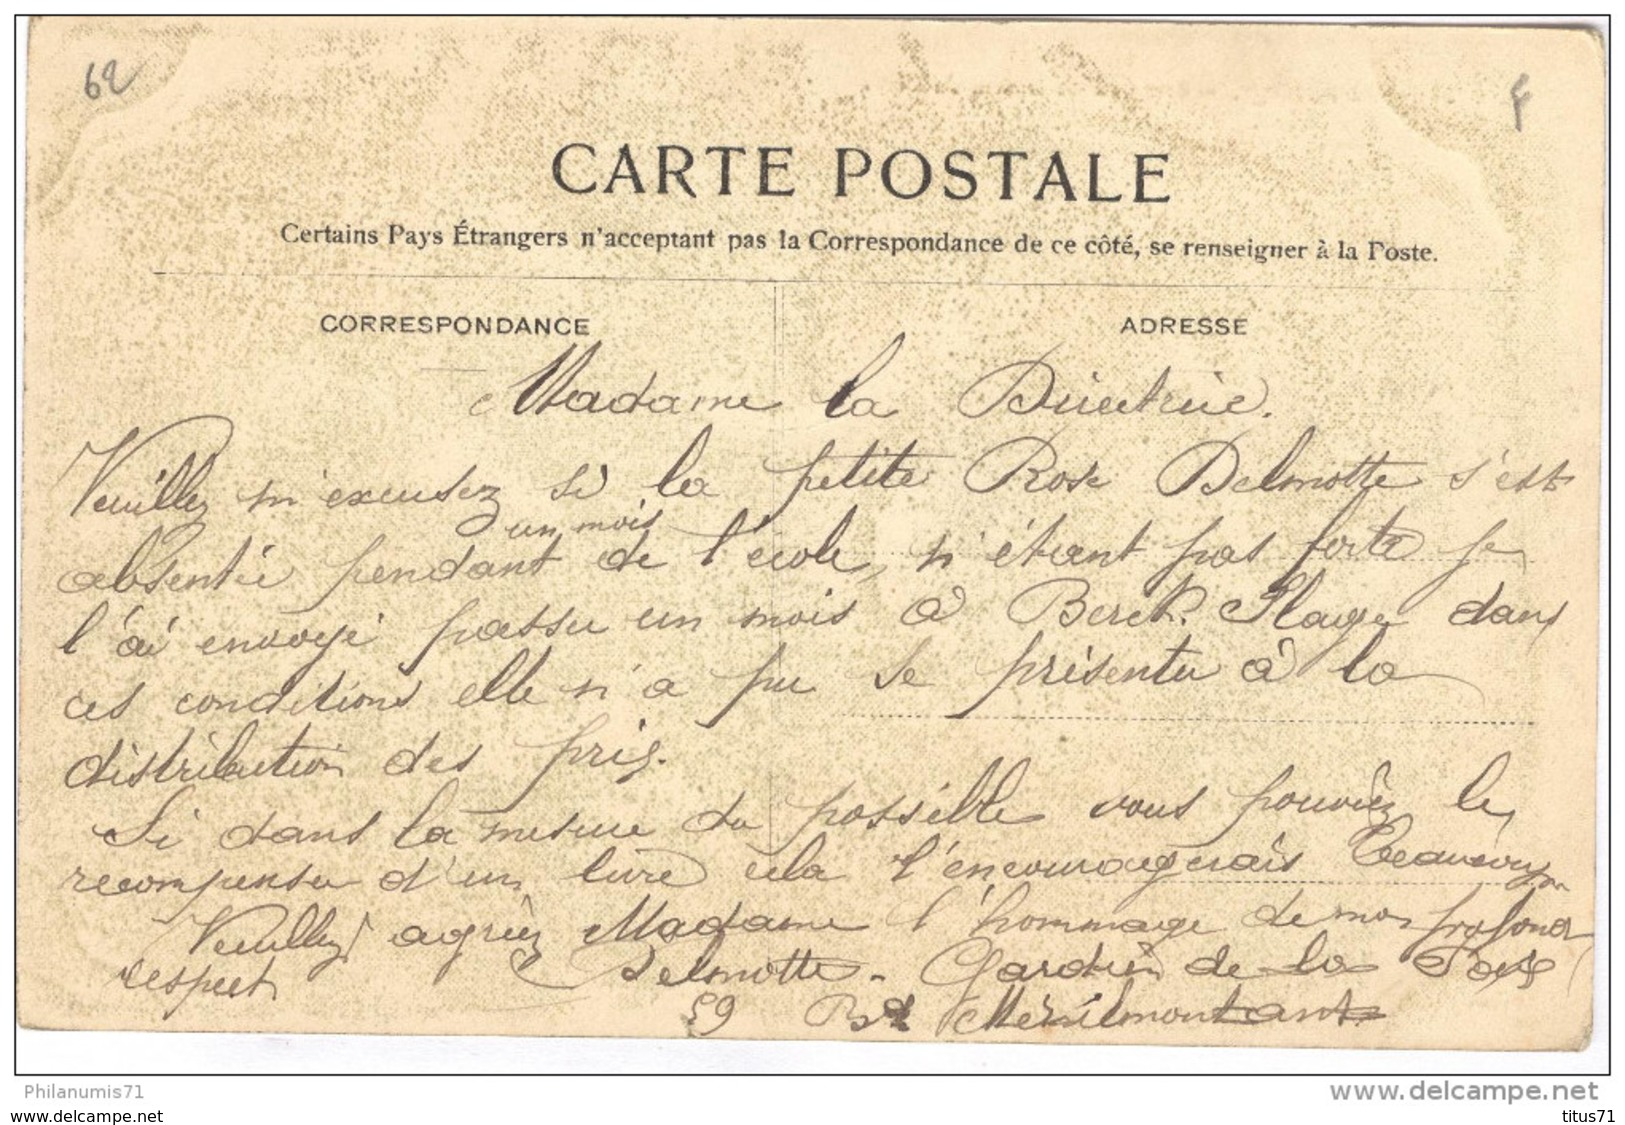 62
F
CARTE POSTALE
Certains Pays Étrangers n'acceptant pas la Correspondance de ce côté, se renseigner à la Poste.
CORRESPONDANCE
ADRESSE
Madame la Directrice.
Veuillez m'excusez si la petite Rose Delmotte s'est
un mois
absentée pendant de l'école, n'étant pas forte je
l'ai envoyé passer un mois à Berck-Plage dans
ces conditions elle n'a pu se présenter à la
distribution des prix.
Si dans la mesure du possible vous pouviez la
recompenser d'un livre cela l'encouragerais beaucoup
Veuillez agréez Madame l'hommage de mon profond
respect
Delmotte - Gardien de la Paix
59 Bd Ménilmontant
Philanumis71
www.delcampe.com
www.delcampe.net
titus71